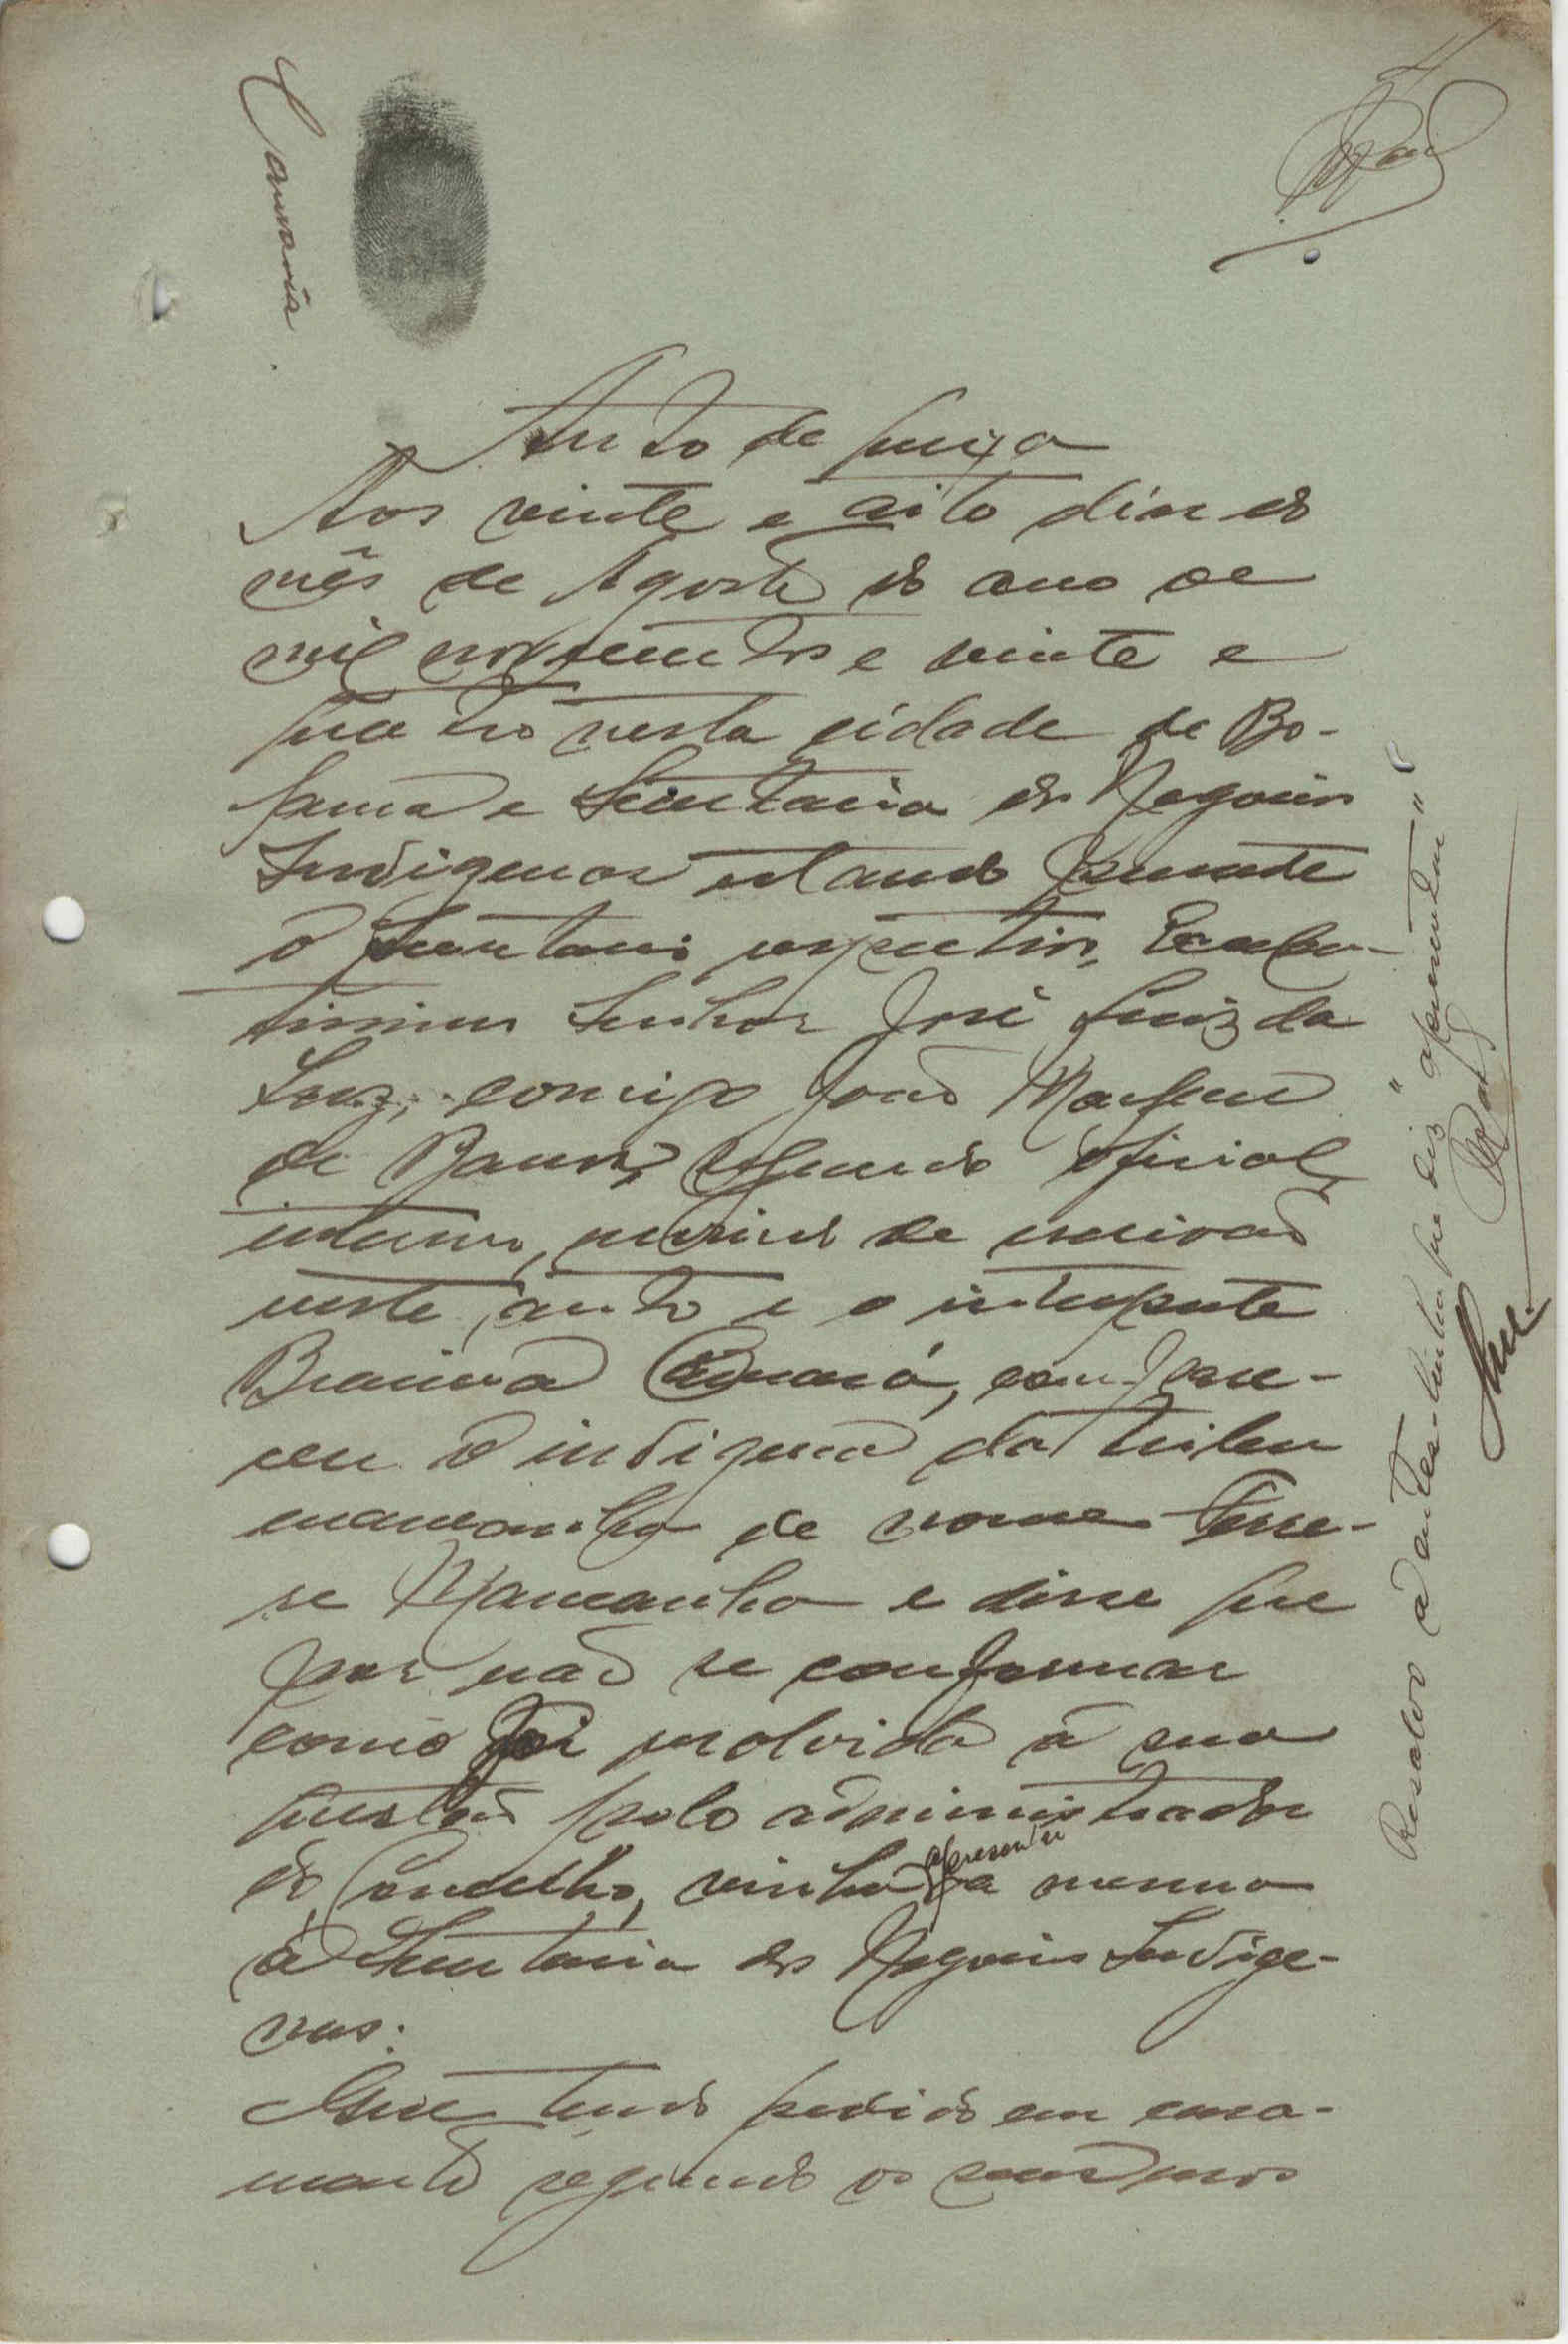 Camará
Auto de queixa
Aos vinte e oito dias do
mês de Agosto do ano de
mil novecentos e vinte e
quatro nesta cidade de Bo-
lama e Secretaria dos Negocios
Indigenas estando presente
o Secretario respectivo, Excelen-
tissimo Senhor José Luiz da
Luz, comigo João
de Barros, segundo oficial
interino, servindo de escrivão
neste auto e o interprete
Braima Camará, compare-
ceu o indigena da tribu
mancanha de nome
se Mancanha e disse que
por não se conformar
como foi resolvida a sua
questão pelo administrador
do Concelho, vinha apresentar a mesma
à Secretaria dos Negocios Indige-
nas.
Que tendo pedido em casa-
mento segundo os seus usos
Resalvo a entre-linha que diz "apresentar"
Luz